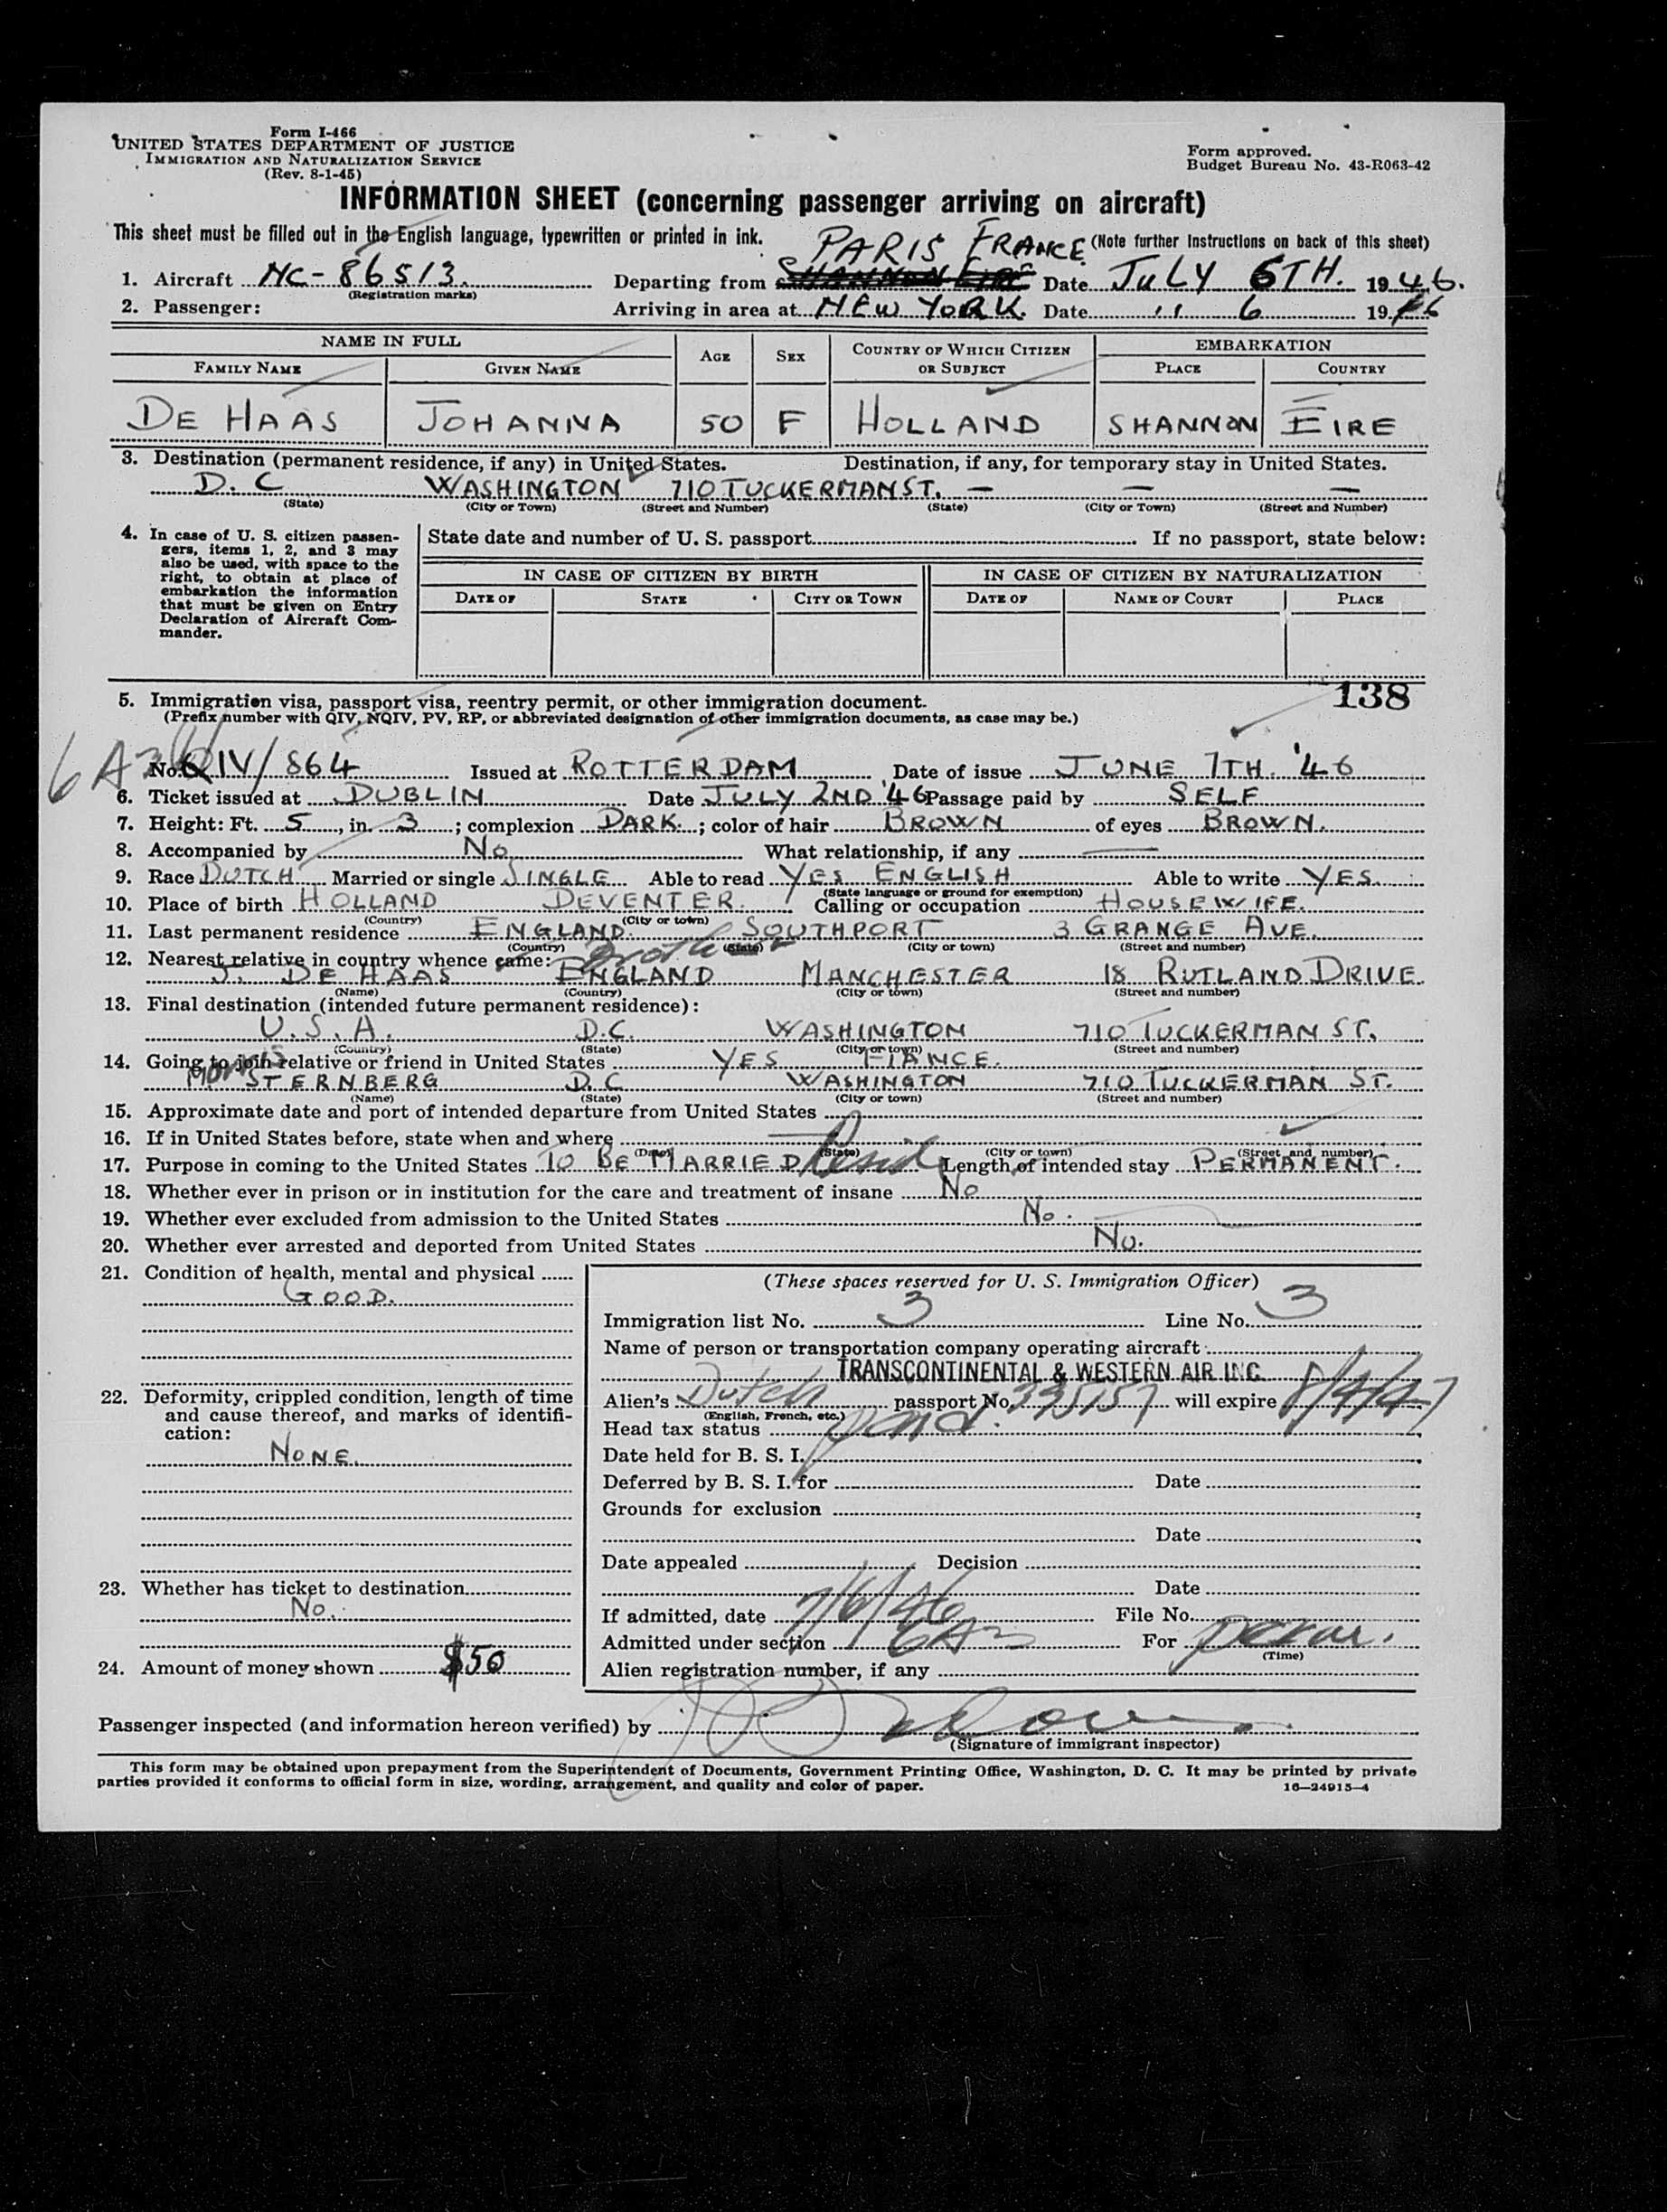 Form I-466
UNITED STATES DEPARTMENT OF JUSTICE
IMMIGRATION AND NATURALIZATION SERVICE
(Rev. 8-1-45)
Form approved.
Budget Bureau No. 43-R063-42
INFORMATION SHEET (concerning passenger arriving on aircraft)
This sheet must be filled out in the English language, typewritten or printed in ink.
PARIS FRANCE (Note further Instructions on back of this sheet)
1. Aircraft NC-86513. Departing from SHANNON EIRE Date JULY 6TH. 1946.
(Registration marks)
2. Passenger: Arriving in area at NEW YORK. Date 11 6 1946
NAME IN FULL AGE SEX COUNTRY OF WHICH CITIZEN OR SUBJECT EMBARKATION
FAMILY NAME GIVEN NAME PLACE COUNTRY
DE HAAS JOHANNA 50 F HOLLAND SHANNON EIRE
3. Destination (permanent residence, if any) in United States. Destination, if any, for temporary stay in United States.
D. C WASHINGTON 710 TUCKERMAN ST. — — —
(State) (City or Town) (Street and Number) (State) (City or Town) (Street and Number)
4. In case of U. S. citizen passen-
gers, items 1, 2, and 3 may
also be used, with space to the
right, to obtain at place of
embarkation the information
that must be given on Entry
Declaration of Aircraft Com-
mander.
State date and number of U. S. passport If no passport, state below:
IN CASE OF CITIZEN BY BIRTH IN CASE OF CITIZEN BY NATURALIZATION
DATE OF STATE CITY OR TOWN DATE OF NAME OF COURT PLACE
138
5. Immigration visa, passport visa, reentry permit, or other immigration document.
(Prefix number with QIV, NQIV, PV, RP, or abbreviated designation of other immigration documents, as case may be.)
6A3
No. QIV/864 Issued at ROTTERDAM Date of issue JUNE 7TH. '46
6. Ticket issued at DUBLIN Date JULY 2ND '46 Passage paid by SELF
7. Height: Ft. 5, in. 3; complexion DARK.; color of hair BROWN of eyes BROWN.
8. Accompanied by No What relationship, if any —
9. Race DUTCH Married or single SINGLE Able to read YES ENGLISH Able to write YES.
(State language or ground for exemption)
10. Place of birth HOLLAND DEVENTER. Calling or occupation HOUSEWIFE.
(Country) (City or town)
11. Last permanent residence ENGLAND. SOUTHPORT 3 GRANGE AVE.
(Country) (State) (City or town) (Street and number)
12. Nearest relative in country whence came: Brother
J. DE HAAS ENGLAND MANCHESTER 18 RUTLAND DRIVE.
(Name) (Country) (City or town) (Street and number)
13. Final destination (intended future permanent residence):
U.S.A. D.C. WASHINGTON 710 TUCKERMAN ST.
(Country) (State) (City or town) (Street and number)
14. Going to join relative or friend in United States YES FIANCE.
Morris STERNBERG D.C WASHINGTON 710 TUCKERMAN ST.
(Name) (State) (City or town) (Street and number)
15. Approximate date and port of intended departure from United States
16. If in United States before, state when and where
(Date) (State) (City or town) (Street and number)
17. Purpose in coming to the United States TO BE MARRIED Resid Length of intended stay PERMANENT.
18. Whether ever in prison or in institution for the care and treatment of insane No
19. Whether ever excluded from admission to the United States No.
20. Whether ever arrested and deported from United States No.
21. Condition of health, mental and physical
GOOD.
22. Deformity, crippled condition, length of time
and cause thereof, and marks of identifi-
cation:
NONE.
23. Whether has ticket to destination
No.
24. Amount of money shown $50
(These spaces reserved for U. S. Immigration Officer)
Immigration list No. 3 Line No. 3
Name of person or transportation company operating aircraft
TRANSCONTINENTAL & WESTERN AIR INC
Alien's Dutch passport No. 335157 will expire 8/4/47
(English, French, etc.)
Head tax status pend.
Date held for B. S. I.
Deferred by B. S. I. for Date
Grounds for exclusion
Date
Date appealed Decision
Date
If admitted, date 7/6/46 File No.
Admitted under section 6A3 For perm.
(Time)
Alien registration number, if any
Passenger inspected (and information hereon verified) by
(Signature of immigrant inspector)
This form may be obtained upon prepayment from the Superintendent of Documents, Government Printing Office, Washington, D. C. It may be printed by private
parties provided it conforms to official form in size, wording, arrangement, and quality and color of paper. 16—24915-4